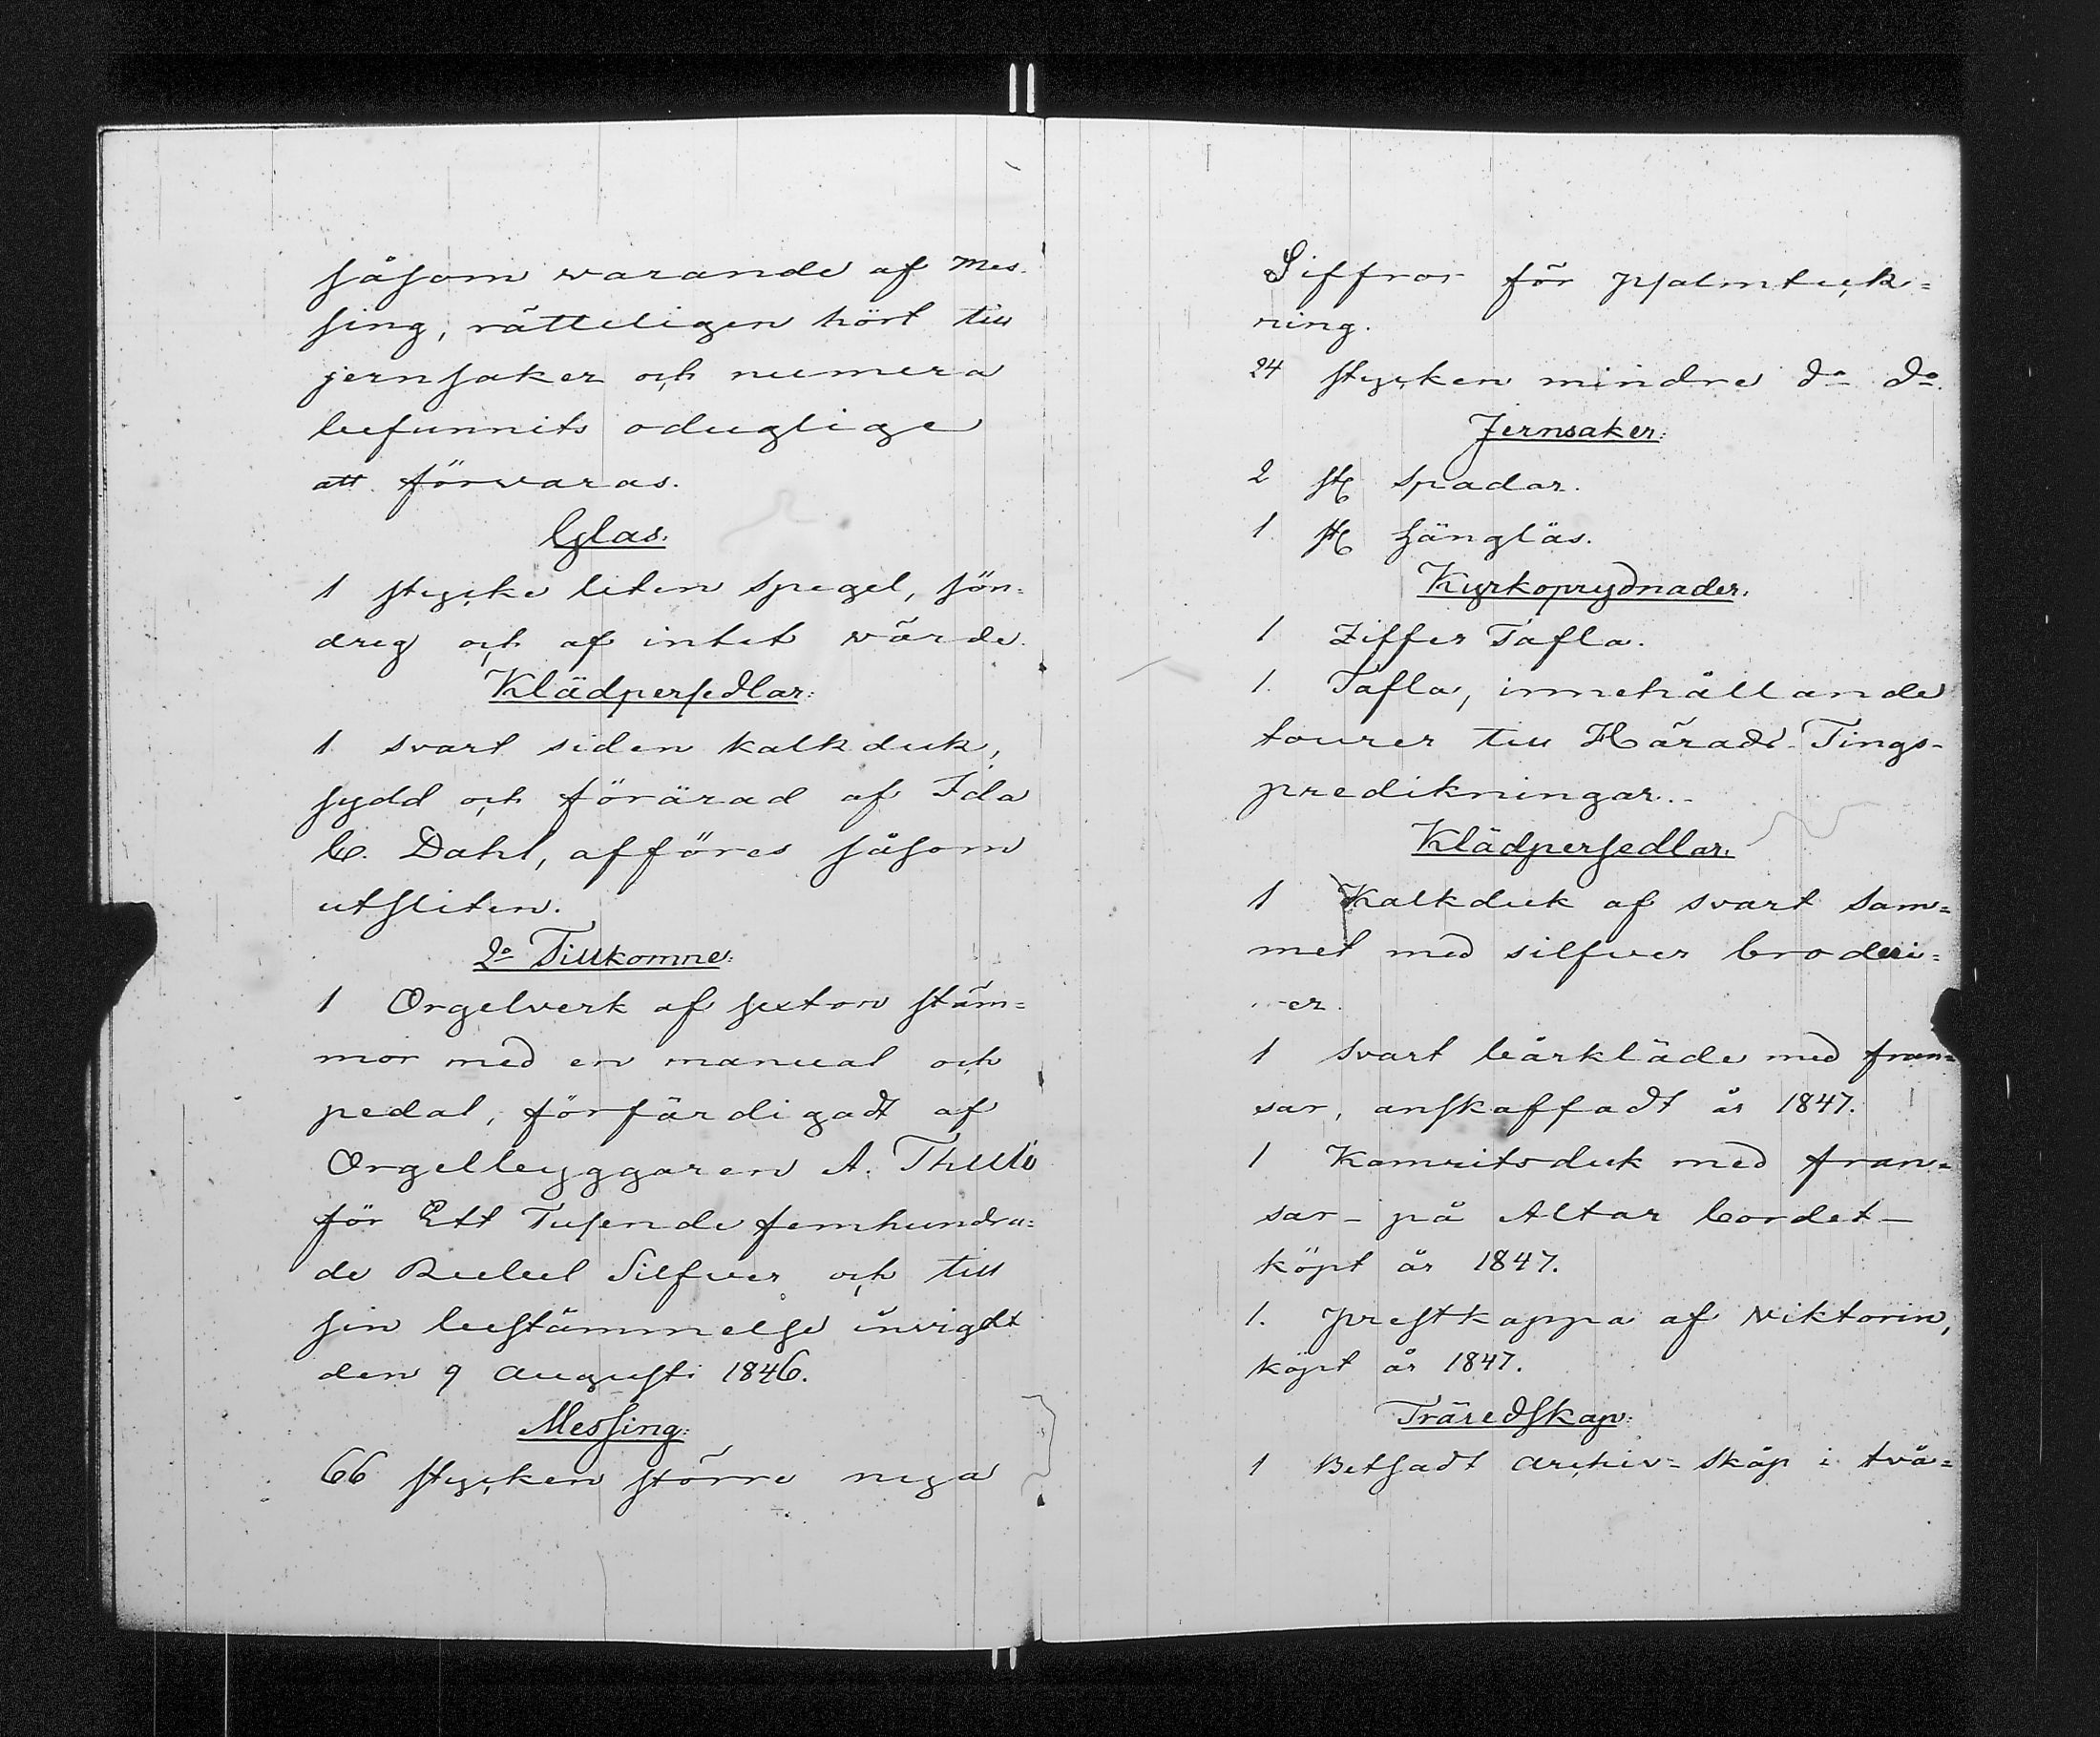 såsom warande af Mes-
sing, rätteligen hört till
jernsaker och numera
befunnits oduglige
att förvaras.
Glas.
1 stycke liten spegel, sön-
drig och af intet wärde.
Klädpersedlar:
1 svart siden kalkduk,
sydd och förärad af Ida
C. Dahl, afföres såsom
utsliten.
2o Tillkomne:
1 Orgelverk af sexton stäm=
mor med en manual och
pedal, förfärdigadt af
Orgelbyggaren A. Thulé
för Ett Tusende femhundra=
de Rubel Silfver och till
sin bestämmelse invigdt
den 9 Augusti 1846.
Messing:
66 stycken större nya
Siffror för psalmteck=
ning.
24 stycken mindre do do.
Jernsaker:
2 st spadar.
1. st hänglås.
Kyrkoprydnader.
1 Ziffer Tafla.
1. Tafla, innehållande
tourer till Härads-Tings-
predikningar.
Klädpersedlar.
1 Kalkduk af svart Sam=
met med silfver broderi=
er.
1 svart bårkläde med fran=
sar, anskaffadt år 1847.
1 Kamritsduk med fran=
sar - på Altar bordet -
köpt år 1847.
1. prestkappa af Viktorin,
köpt år 1847.
Träredskap:
1 Betsadt Archiv=skåp i två=